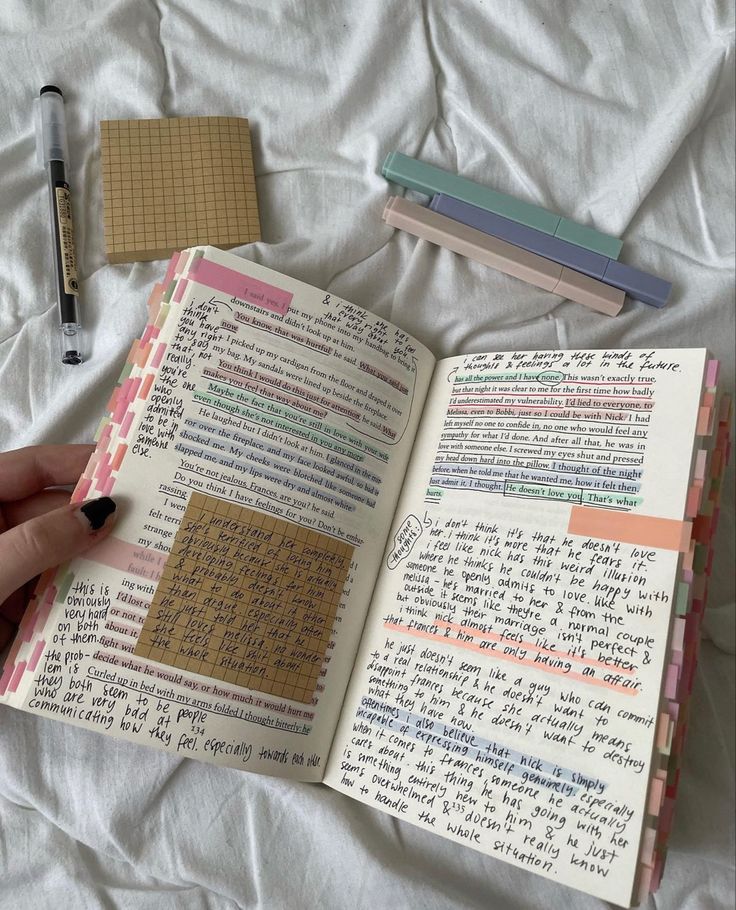 I said yes. I put my phone into my handbag to
downstairs and didn't look up at him.
You know, that was hurtful, he said. What you said just
now.
I picked up my cardigan from the floor and draped it over
my bag. My sandals were lined up beside the fireplace.
You think I would do this just for attention, he said. What
makes you feel that way about me?
Maybe the fact that you're still in love with your wife
even though she's not interested in you any more.
He laughed but I didn't look at him. I glanced in the mir-
ror over the fireplace, and my face looked awful, so bad it
shocked me. My cheeks were blotched like someone had
slapped me, and my lips were dry and almost white.
You're not jealous, Frances, are you? he said.
Do you think I have feelings for you? Don't be embar-
rassing
I wen
felt terri
strange
my shou
while I
fault: I
ing with
I'd lost
or not t
about it
fight wi
decide what he would say, or how much it would hurt me.
Curled up in bed with my arms folded I thought bitterly: he
134
& i think she has
every right to feel
that way about you
i don't
think
you have
any right
to say
that
really not
you're
the one
who
openly
admitted
to be in
love with
someone
else.
i understand her completely,
she's terrified of losing him
obviously because she is actually
developing feelings for him
& probably doesn't know
what to do about it other
than argue. especially after
he just told her that he
still loves melissa, no wonder
she feels like shit about
the whole situation.
this is
obviously
very hard
on both
of them.
the prob-
lem is
they both seem to be people
who are very bad at
communicating how they feel, especially towards each other.
i can see her having these kinds of
thoughts & feelings a lot in the future.
has all the power and I have none. This wasn't exactly true,
but that night it was clear to me for the first time how badly
I'd underestimated my vulnerability. I'd lied to everyone, to
Melissa, even to Bobbi, just so I could be with Nick. I had
left myself no one to confide in, no one who would feel any
sympathy for what I'd done. And after all that, he was in
love with someone else. I screwed my eyes shut and pressed
my head down hard into the pillow. I thought of the night
before, when he told me that he wanted me, how it felt then.
Just admit it, I thought. He doesn't love you. That's what
hurts.
some
thoughts
i don't think it's that he doesn't love
her. i think it's more that he fears it.
i feel like nick has this weird illusion
where he thinks he couldn't be happy with
someone he openly admits to love. like with
melissa - he's married to her & from the
outside it seems like they're a normal couple
but obviously their marriage isn't perfect &
i think nick almost feels like it's better
that frances & him are only having an affair.
he just doesn't seem like a guy who can commit
to a real relationship & he doesn't want to
disappoint frances because she actually means
something to him & he doesn't want to destroy
what they have now.
sometimes i also believe that nick is simply
incapable of expressing himself genuinely, especially
when it comes to frances, someone he actually
cares about. this thing he has going with her
is something entirely new to him & he just
seems overwhelmed & doesn't really know
how to handle the whole situation.
135